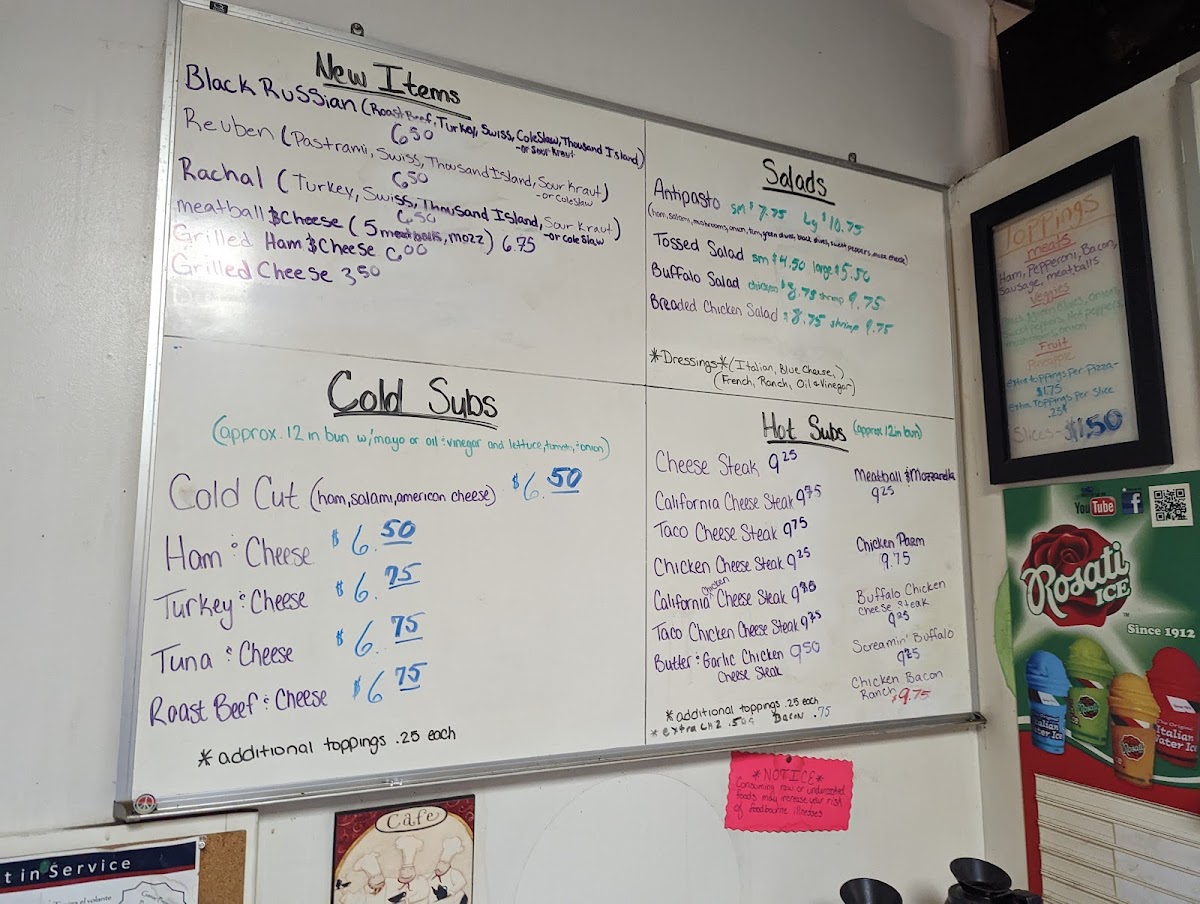 New Items
Black Russian (Roast Beef, Turkey, Swiss, ColeSlaw, Thousand Island)
-or Sour Kraut
650
Reuben (Pastrami, Swiss, Thousand Island, Sour Kraut)
-or ColeSlaw
650
Rachal (Turkey, Swiss, Thousand Island, Sour Kraut)
-or Cole Slaw
650
meatball & Cheese (5 meatballs, mozz) 6.75
Grilled Ham & Cheese 600
Grilled Cheese 350
Salads
Antipasto sm $7.75 Lg $10.75
Tossed Salad sm $4.50 large $5.50
Buffalo Salad chicken $8.75 shrimp 9.75
Breaded Chicken Salad $8.75 shrimp 9.75
*Dressings* (Italian, Blue Cheese,)
(French, Ranch, Oil & Vinegar)
Cold Subs
(approx. 12 in bun w/mayo or oil & vinegar and lettuce, tomato, & onion)
Cold Cut (ham, salami, american cheese) $6.50
Ham & Cheese $6.50
Turkey & Cheese $6.75
Tuna & Cheese $6.75
Roast Beef & Cheese $6.75
*additional toppings .25 each
Hot Subs (approx 12 in bun)
Cheese Steak 925
California Cheese Steak 975
Taco Cheese Steak 975
Chicken Cheese Steak 925
California Chicken Cheese Steak
Taco Chicken Cheese Steak
Butter & Garlic Chicken 950
Cheese Steak
Meatball & Mozzarella
925
Chicken Parm
9.75
Buffalo Chicken
Cheese Steak
925
Screamin' Buffalo
925
Chicken Bacon
Ranch $9.75
*additional toppings .25 each
*extra CHZ .50 Bacon .75
TOPPINGS
meats
Ham, Pepperoni, Bacon,
Sausage, meatballs
Veggies
Fruit
Pineapple
extra toppings Per Pizza-
$1.75
Extra Toppings Per Slice
.25¢
Slices - $1.50
YouTube
f
Rosati
ICE
Since 1912
Italian
Water Ice
Rosati
The Original
Italian
Water Ice
*NOTICE*
Consuming raw or undercooked
foods may increase your risk
of foodbourne illnesses
Cafe
t in Service